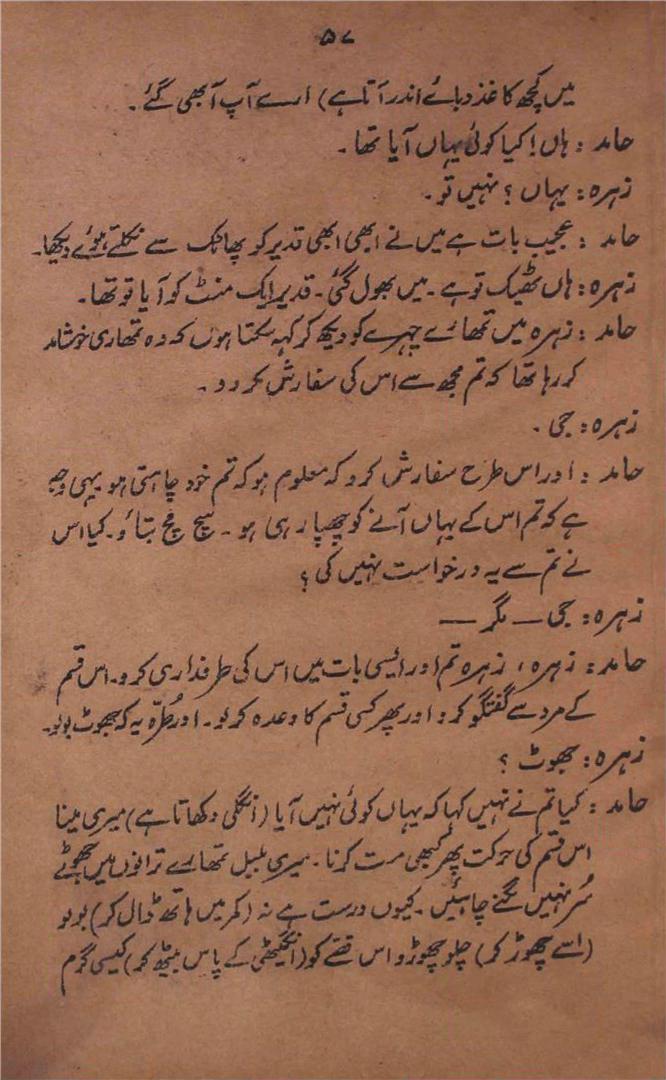 ۵۷
میں کچھ کاغذ دبائے اندر آتا ہے) ارے آپ آ بھی گئے۔
حامد : ہاں! کیا کوئی یہاں آیا تھا۔
زہرہ : یہاں ؟ نہیں تو۔
حامد : عجیب بات ہے میں نے ابھی ابھی قدیر کو پھاٹک سے نکلتے ہوئے دیکھا۔
زہرہ : ہاں ٹھیک تو ہے۔ میں بھول گئی۔ قدیر ایک منٹ کو آیا تو تھا۔
حامد : زہرہ میں تمھارے چہرے کو دیکھ کر کہہ سکتا ہوں کہ وہ تمھاری خوشامد
کر رہا تھا کہ تم مجھ سے اس کی سفارش کر دو۔
زہرہ : جی۔
حامد : اور اس طرح سفارش کرو کہ معلوم ہو کہ تم خود چاہتی ہو یہی وجہ
ہے کہ تم اس کے یہاں آنے کو چھپا رہی ہو۔ سچ مچ بتاؤ۔ کیا اس
نے تم سے یہ درخواست نہیں کی ؟
زہرہ : جی — مگر —
حامد : زہرہ ، زہرہ تم اور ایسی بات میں اس کی طرفداری کرو۔ اس قسم
کے مرد سے گفتگو کرو اور پھر کسی قسم کا وعدہ کر لو۔ اور طُرّہ یہ کہ جھوٹ بولو۔
زہرہ : جھوٹ ؟
حامد : کیا تم نے نہیں کہا کہ یہاں کوئی نہیں آیا (انگلی دکھاتا ہے) میری مینا
اس قسم کی حرکت پھر کبھی مت کرنا۔ میری بلبل تمھارے ترانوں میں جھوٹے
سُر نہیں لگنے چاہئیں۔ کیوں درست ہے نہ (کمر میں ہاتھ ڈال کر) بولو
(اسے چھوڑ کر) چلو چھوڑو اس قصے کو (انگیٹھی کے پاس بیٹھ کر) کیسی گرم